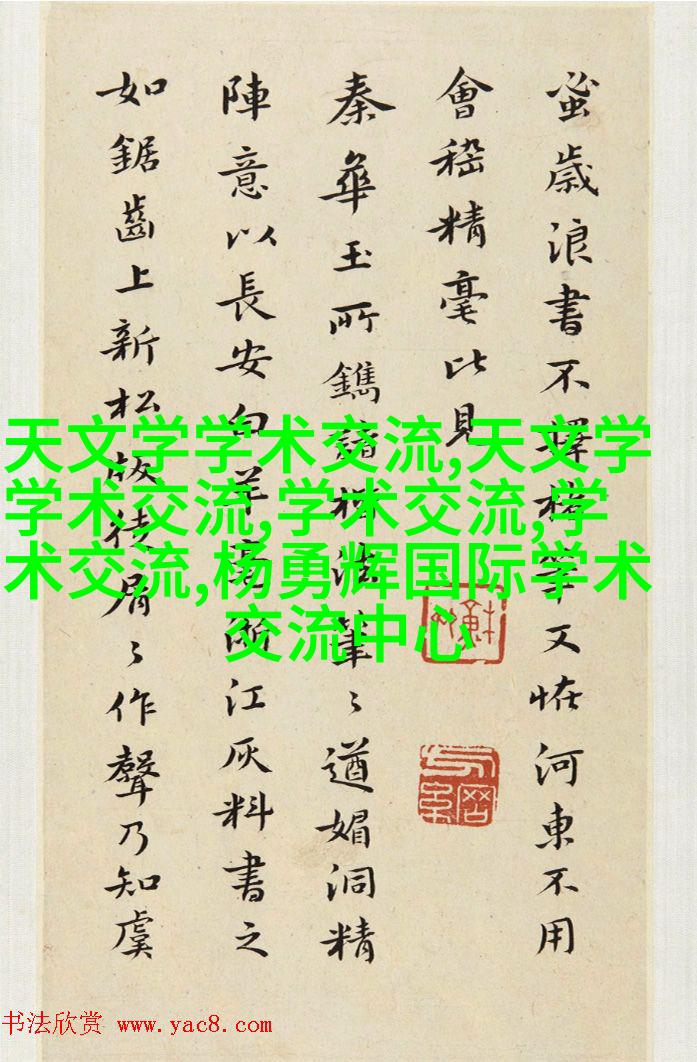 蚤歲浪書不擇楮筆又恠河東不用
會稽精毫比見
秦華玉所鐫諸禊筆〻遒媚洞精
陣意以長安白羊毫浙江灰料書之
如鋸齒上新松徒屑〻作聲乃知虞
天文学学术交流,天文学
学术交流,学术交流,学
术交流,杨勇辉国际学术
交流中心
书法欣赏 www.yac8.com